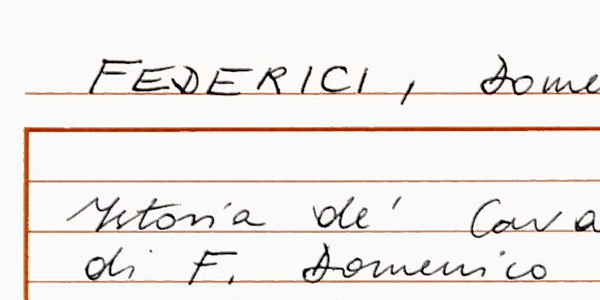 FEDERICI, Dome
Istoria de' Cava
di F. Domenico